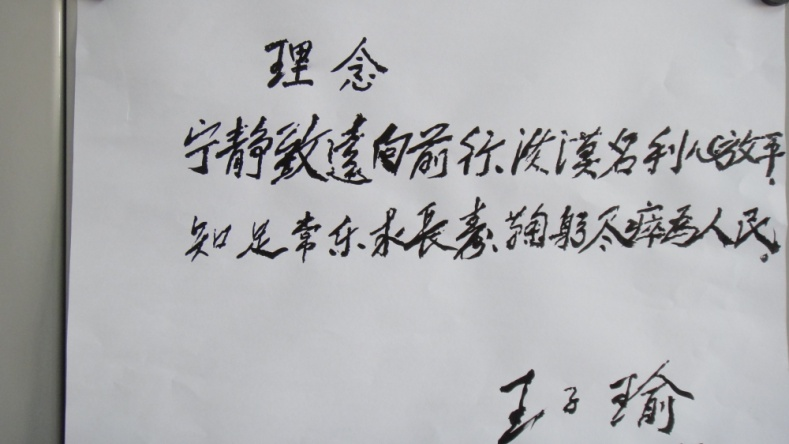 理念
宁静致遠向前行、淡漠名利心放平.
知足常乐求長寿、鞠躬尽瘁为人民。
王子瑜